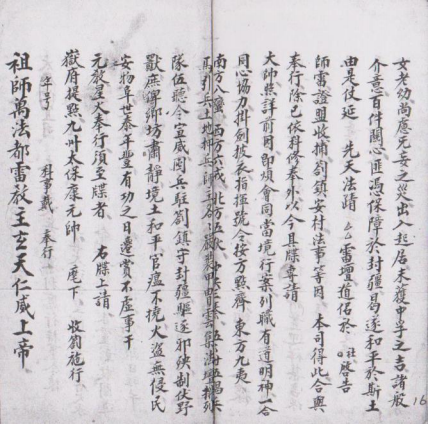 女老幼尚應无妄之災出入起居未獲中孚之吉諸般
介意百件關心匪憑保障於封疆曷遂和平於斯土
由是伏延 先天法請 △△雷壇道侶於 口社啓告
師雷證盟收捕劄鎮安村法事等因 本司得此合與
奉行除已依科修奉外以今具牒專請
大師照詳前因即煩會同當境行案列職有道明神一合
同心協力掛劍披衣指揮號令按方點齊 東方九夷
南方八蠻西方六戎北方五狄
隊伍聽令宣威罔兵駐劄鎮守封疆驅逐邪殃制伏野
獸庶俾鄉坊肅靜境土和平官瘟不擾火盜無侵民
安物阜世泰年豐有功之日遷賞不虛事干
元教星火奉行須至牒者 右牒上請
嶽府提點九州太保康元帥 麾下 收劄施行
年号 科事戴 奉行
祖師萬法都雷教主玄天仁威上帝
16